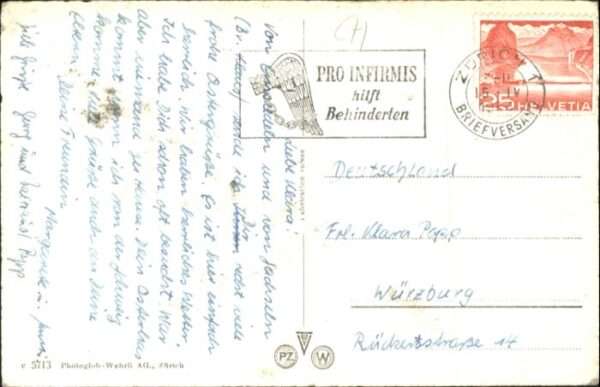 Liebe Klara!
Von Einsiedeln und von Sachseln
(Br. Klaus) sende ich Dir recht viele
frohe Ostergrüsse. Es ist hier einfach
herrlich. Wir haben herrliches Wetter.
Ich habe Dich schon oft besucht. War
aber niemand zu Hause. Dein
kommt, wenn ich von der
komme. Viele Grüsse auch an Deine
Eltern. Deine Freundin
Margarete
viele Grüsse, Georg und Popp
PRO INFIRMIS
hilft
Behinderten
ZÜRICH 1
BRIEFVERSAND
25 HELVETIA
Deutschland
Frl. Klara Popp
Würzburg
Rückertstraße 14
PZ W
c 5713 Photoglob-Wehrli AG., Zürich